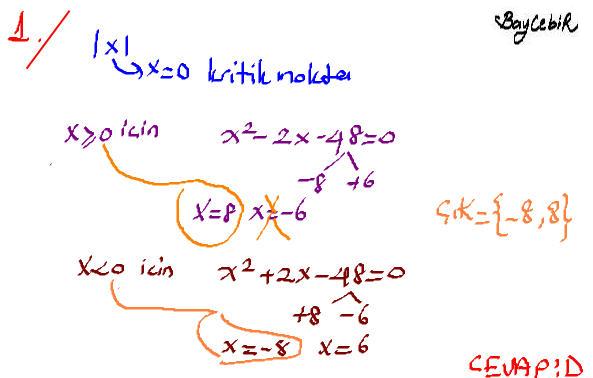 BayCebiR
1./
|x|
x=0 kritik nokta
x≥0 için x²-2x-48=0
-8 +6
x=8 x=-6
Ç.K={-8,8}
x<0 için x²+2x-48=0
+8 -6
x=-8 x=6
CEVAP:D